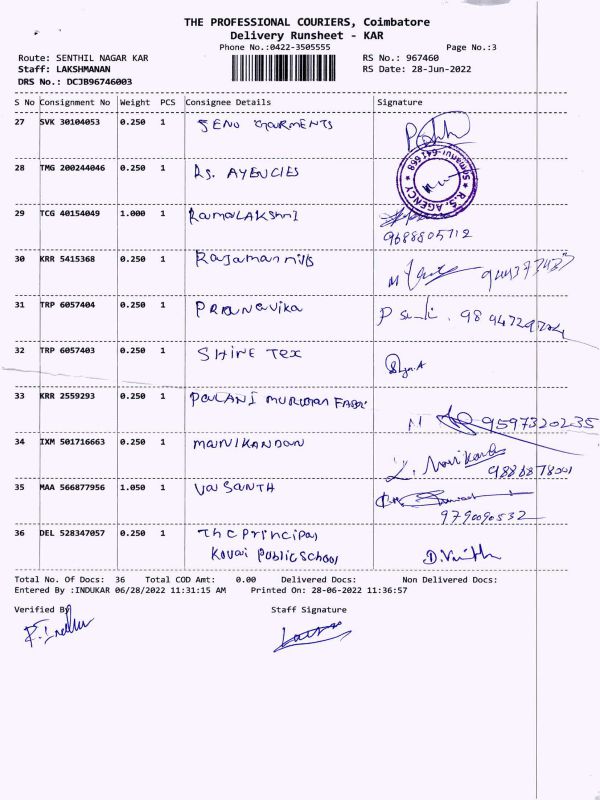 THE PROFESSIONAL COURIERS, Coimbatore
Delivery Runsheet - KAR
Phone No.:0422-3505555 Page No.:3
Route: SENTHIL NAGAR KAR RS No.: 967460
Staff: LAKSHMANAN RS Date: 28-Jun-2022
DRS No.: DCJB96746003
S No Consignment No Weight PCS Consignee Details Signature
27 SVK 30104053 0.250 1 SENU GARMENTS
28 TMG 200244046 0.250 1 Rs. AYENCIES
R.S. AGENCY
Somanur-641 668
29 TCG 40154049 1.000 1 RamaLAKShmI
9688805712
30 KRR 5415368 0.250 1 Rajaman mills
31 TRP 6057404 0.250 1 PRanavika
32 TRP 6057403 0.250 1 SHINE Tex
33 KRR 2559293 0.250 1 PALANI MURUGAN FABRI
9597320235
34 IXM 501716663 0.250 1 MANIKANDAN
35 MAA 566877956 1.050 1 VASANTH
9790090532
36 DEL 528347057 0.250 1 The Principal
Kovai Public School
Total No. Of Docs: 36 Total COD Amt: 0.00 Delivered Docs: Non Delivered Docs:
Entered By :INDUKAR 06/28/2022 11:31:15 AM Printed On: 28-06-2022 11:36:57
Verified By Staff Signature